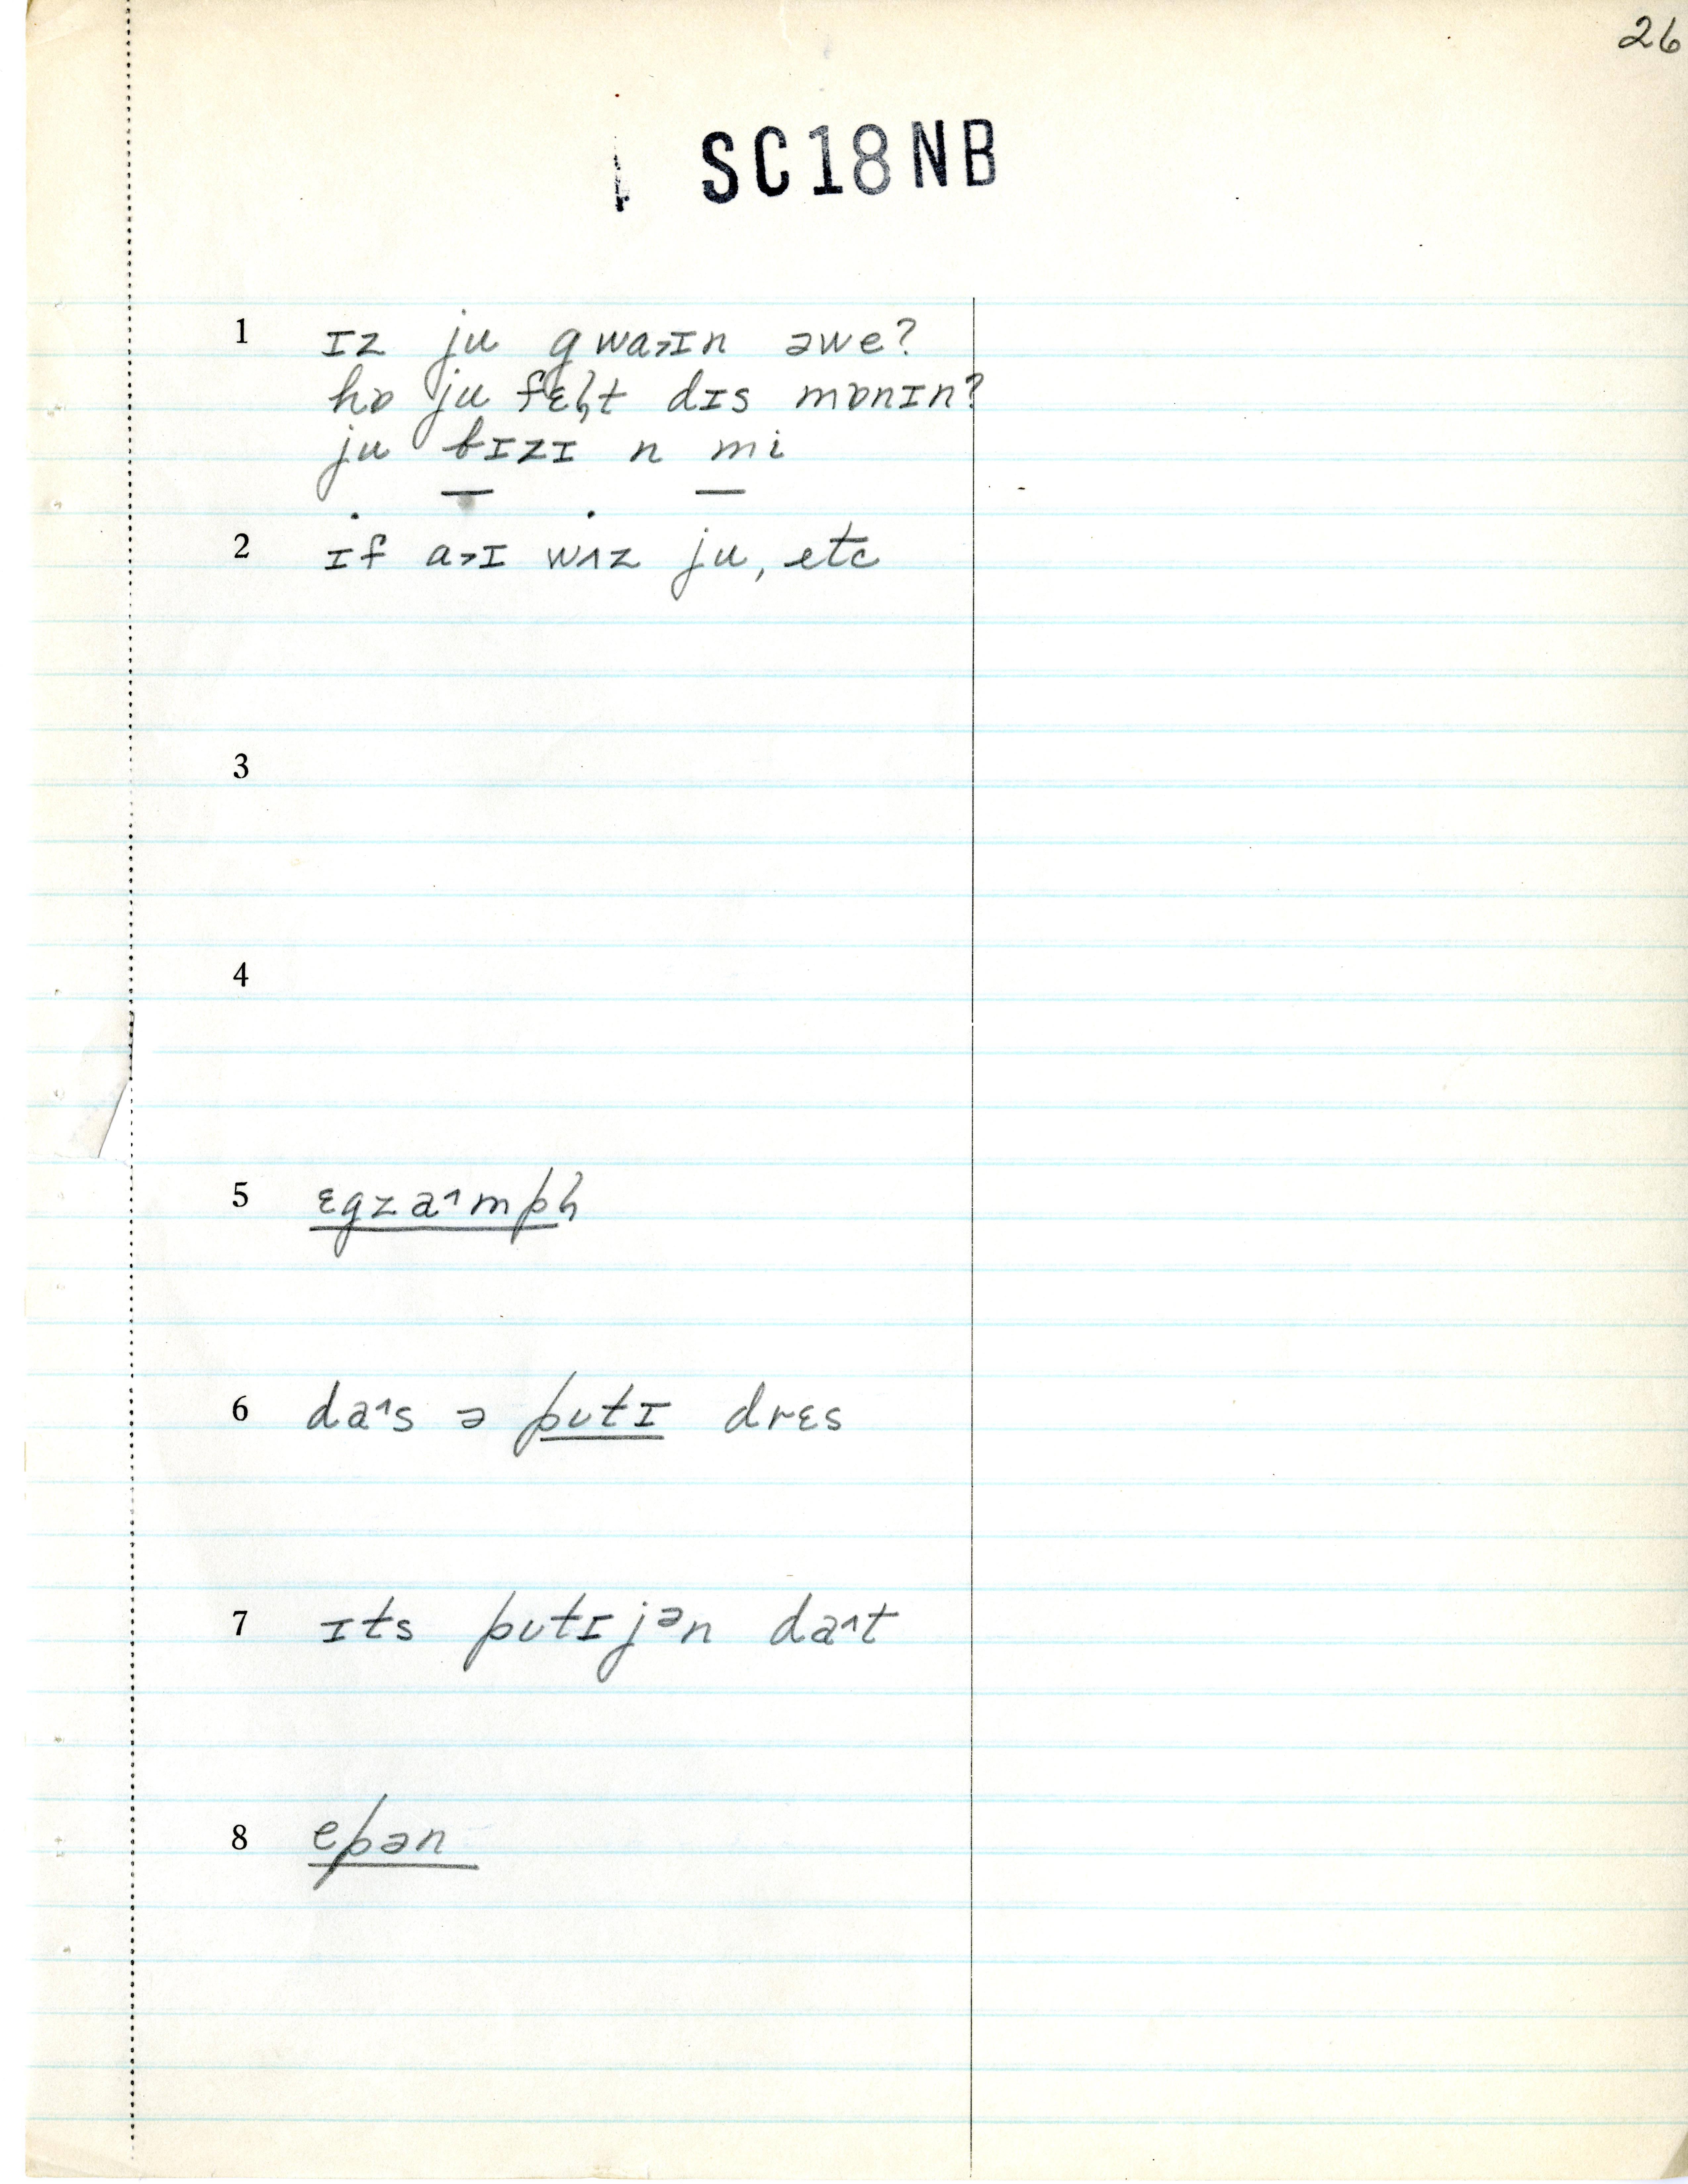 26
SC18NB
1 ɪz ju gwa>ɪn əwe?
hɒ ju fɛɫt dɪs mɒnɪn?
ju bɪzɪ n mi
2 ɪf a>ɪ wʌz ju, etc
3
4
5 ɛgza^mpɫ
6 da^s ə pʊtɪ drɛs
7 ɪts pʊtɪjən da^t
8 epən